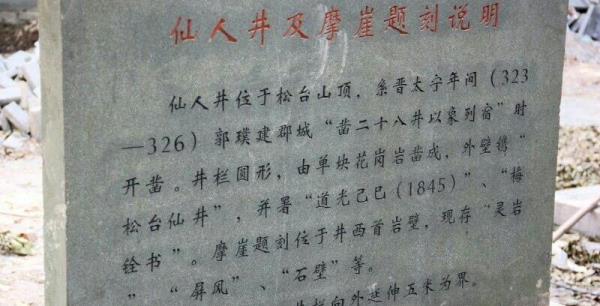 仙人井及摩崖题刻说明
仙人井位于松台山顶，系晋太宁年间(323
—326)郭璞建郡城“凿二十八井以象列宿”时
开凿。井栏圆形，由单块花岗岩凿成，外壁镌“
松台仙井”，并署“道光己巳(1845)”、“梅
铨书”。摩崖题刻位于井西首岩壁，现存“灵岩
”、“屏风”、“石壁”等。
井栏向外延伸五米为界。